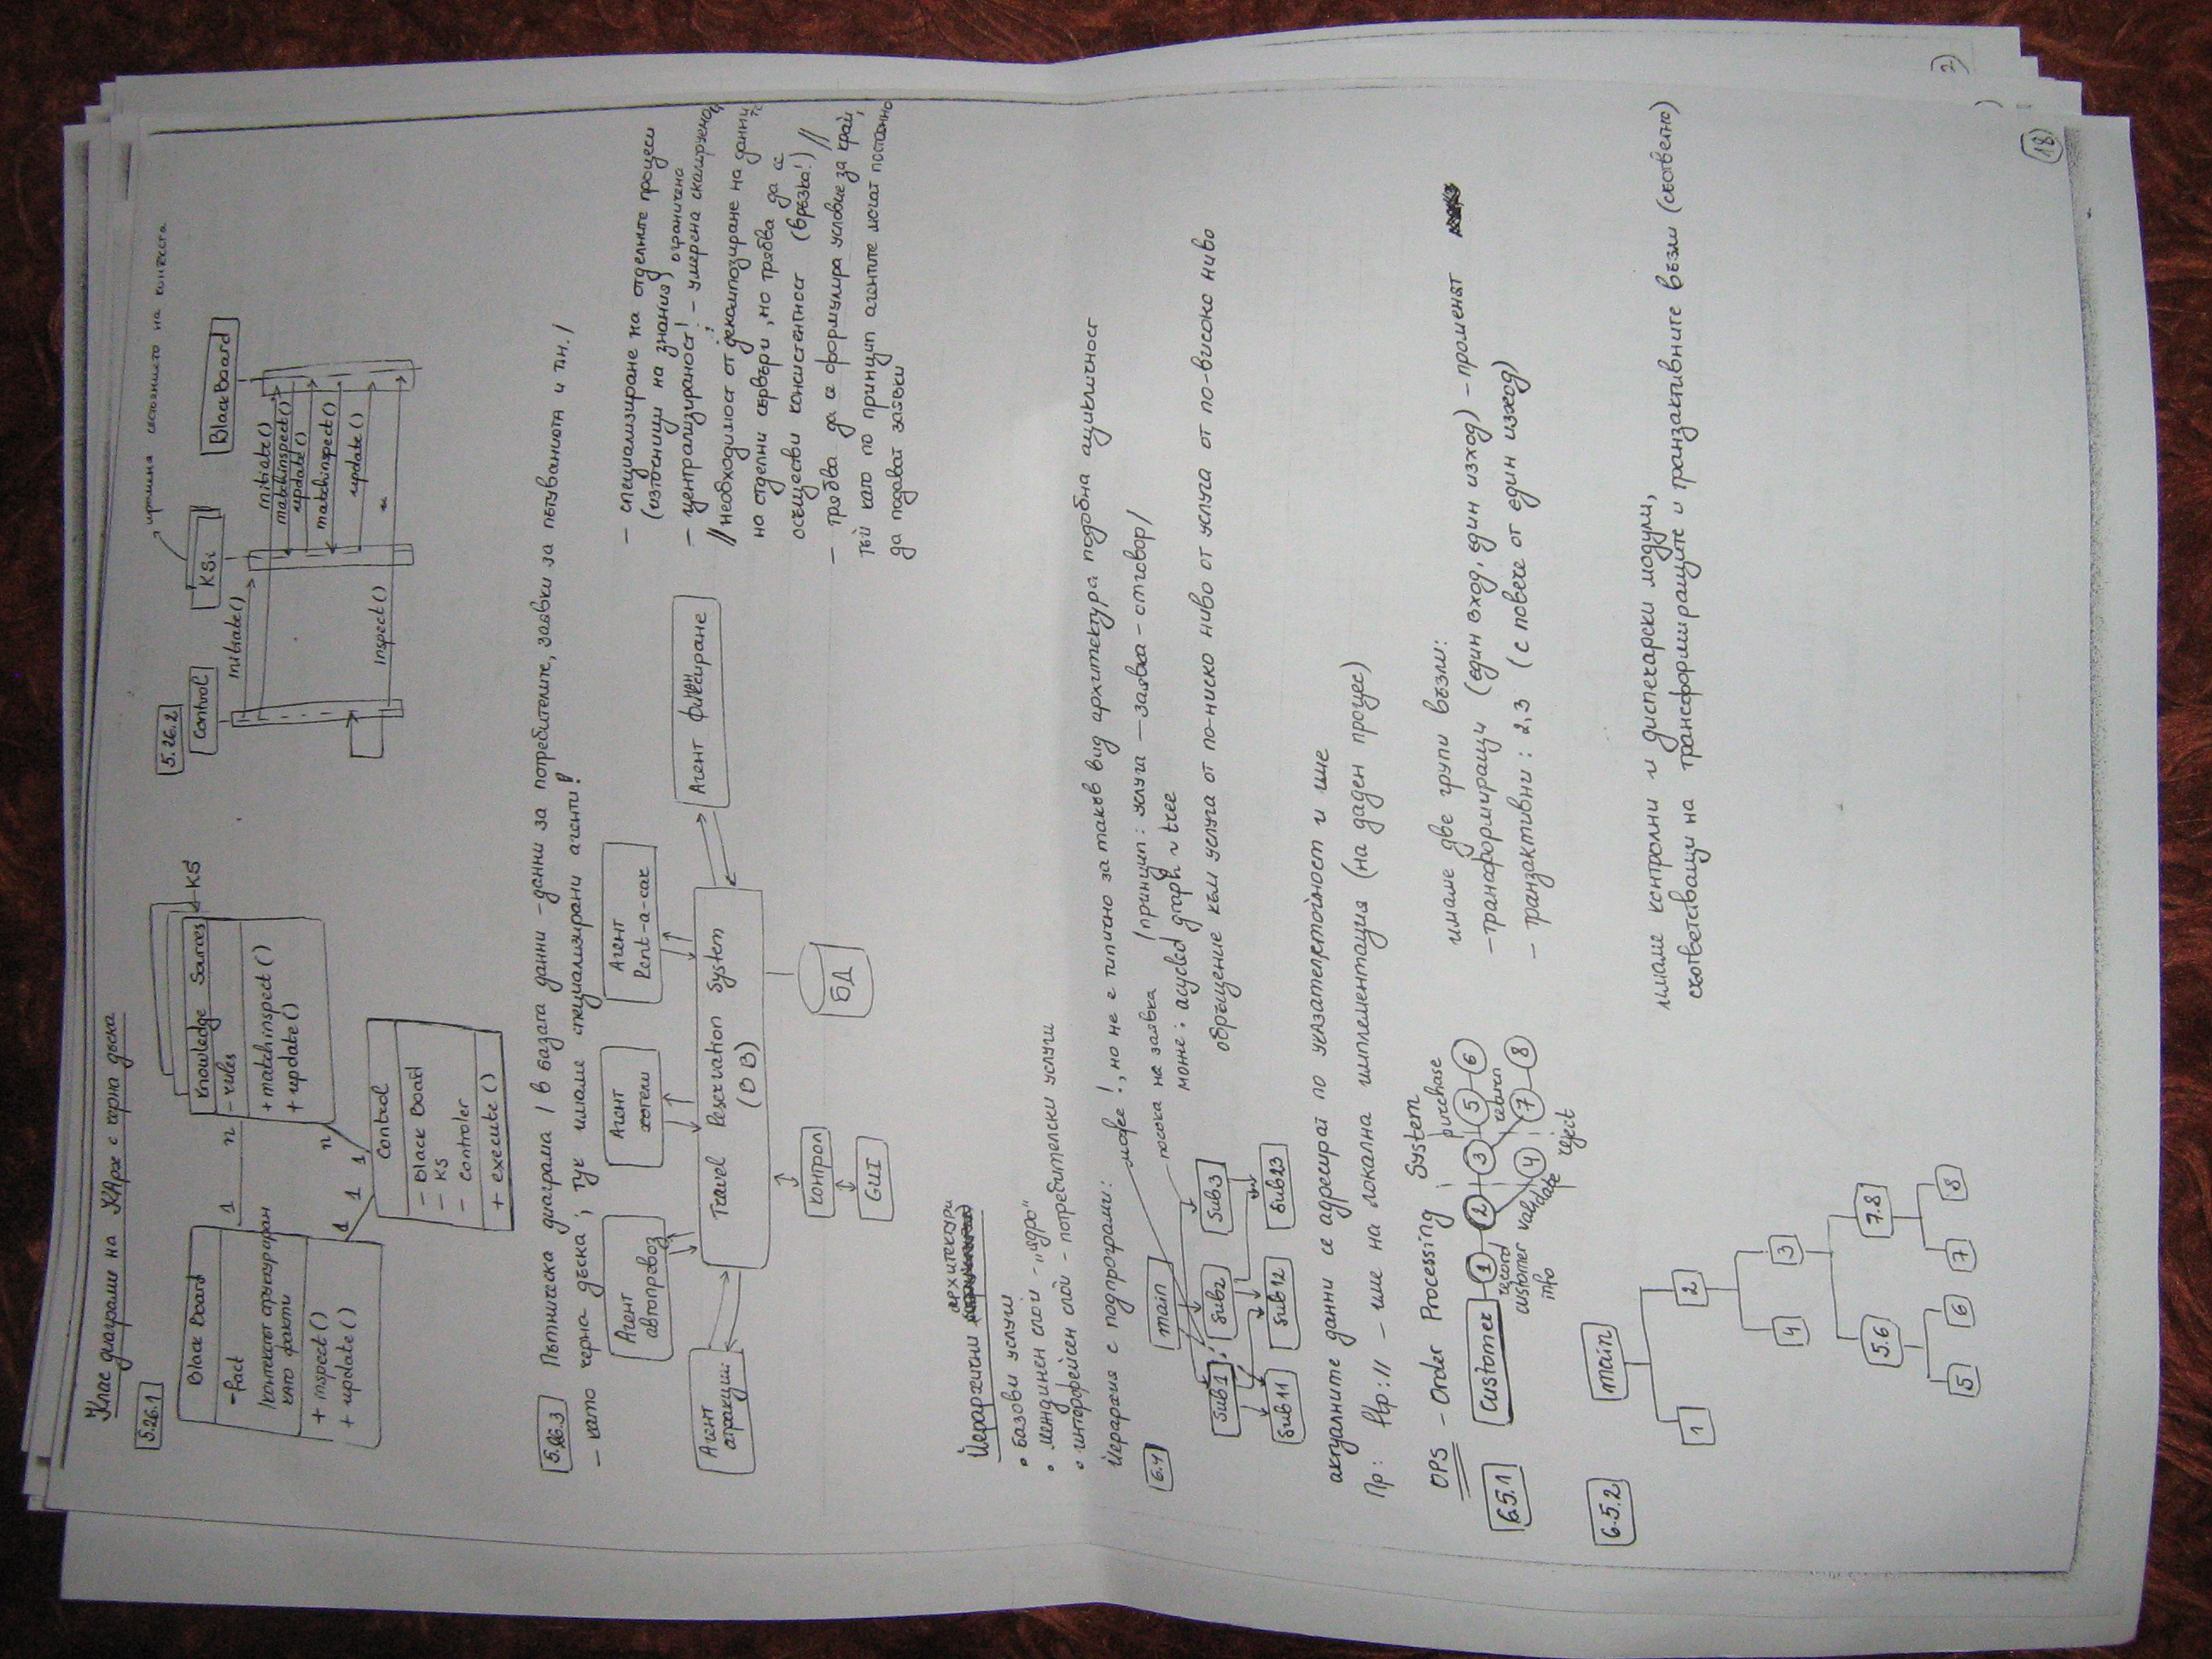 Клас диаграме на КАрх с черна дъска
5.26.1
Black Board
-fact
контекст
като факти
+ inspect()
+ update()
1
n
Knowledge Sources
- rules
+ matchinspect()
+ update()
KS
n
1
1
1
Control
- Black Board
- KS
- controler
+ execute()
5.26.2
промяна състоянието на контекста
Control
KSi
BlackBoard
initiate()
initiate()
matchinspect()
update()
matchinspect()
update()
inspect()
5.26.3
Пътническа диаграма / в базата данни - данни за потребители, заявки за пътувания и т.н. /
- като черна дъска ; тук имаме специализирани агенти!
Агент атракции
Агент автопревоз
Агент хотели
Агент Rent-a-car
Агент финансиране
Travel Reservation System
БД
контрол
GUI
- специализиране на отделните процеси
(източници на знания)
- централизираност! - ограничена умерена
// необходимост от декомпозиране на данни
на отделни сървъри, но трябва да се
осъществи консистентност (връзка!) //
- трябва да се формулира условие за край,
тъй като по принцип агентите могат постоянно
да подават заявки
Йерархични архитектури
• базови услуги
• междинен слой - „ядро"
• интерфейсен слой - потребителски услуги
Йерархия с подпрограми:
може!, но не е типично за такъв вид архитектура подобна ацикличност
6.4
main
Sub1
Sub2
Sub3
Sub11
Sub12
Sub23
посока на заявка /принцип: услуга - заявка - отговор/
може: acycled graph и tree
обръщение към услуга от по-ниско ниво от услуга от по-високо ниво
актуалните данни се адресират по указателство и име
Пр: ftp:// - име на локална имплементация (на даден процес)
OPS - Order Processing System
6.5.1
Customer
1
2
3
4
5
6
7
8
record customer info
validate
purchase
return
reject
имаме две групи възли:
- трансформиращи (един вход, един изход) - променят
- транзактивни : 2,3 (с повече от един изход)
6.5.2
main
1
2
4
3
5.6
7.8
5
6
7
8
имаме контролни и диспечерски модули,
съответстващи на трансформиращите и транзактивните възли (съответно)
18
2